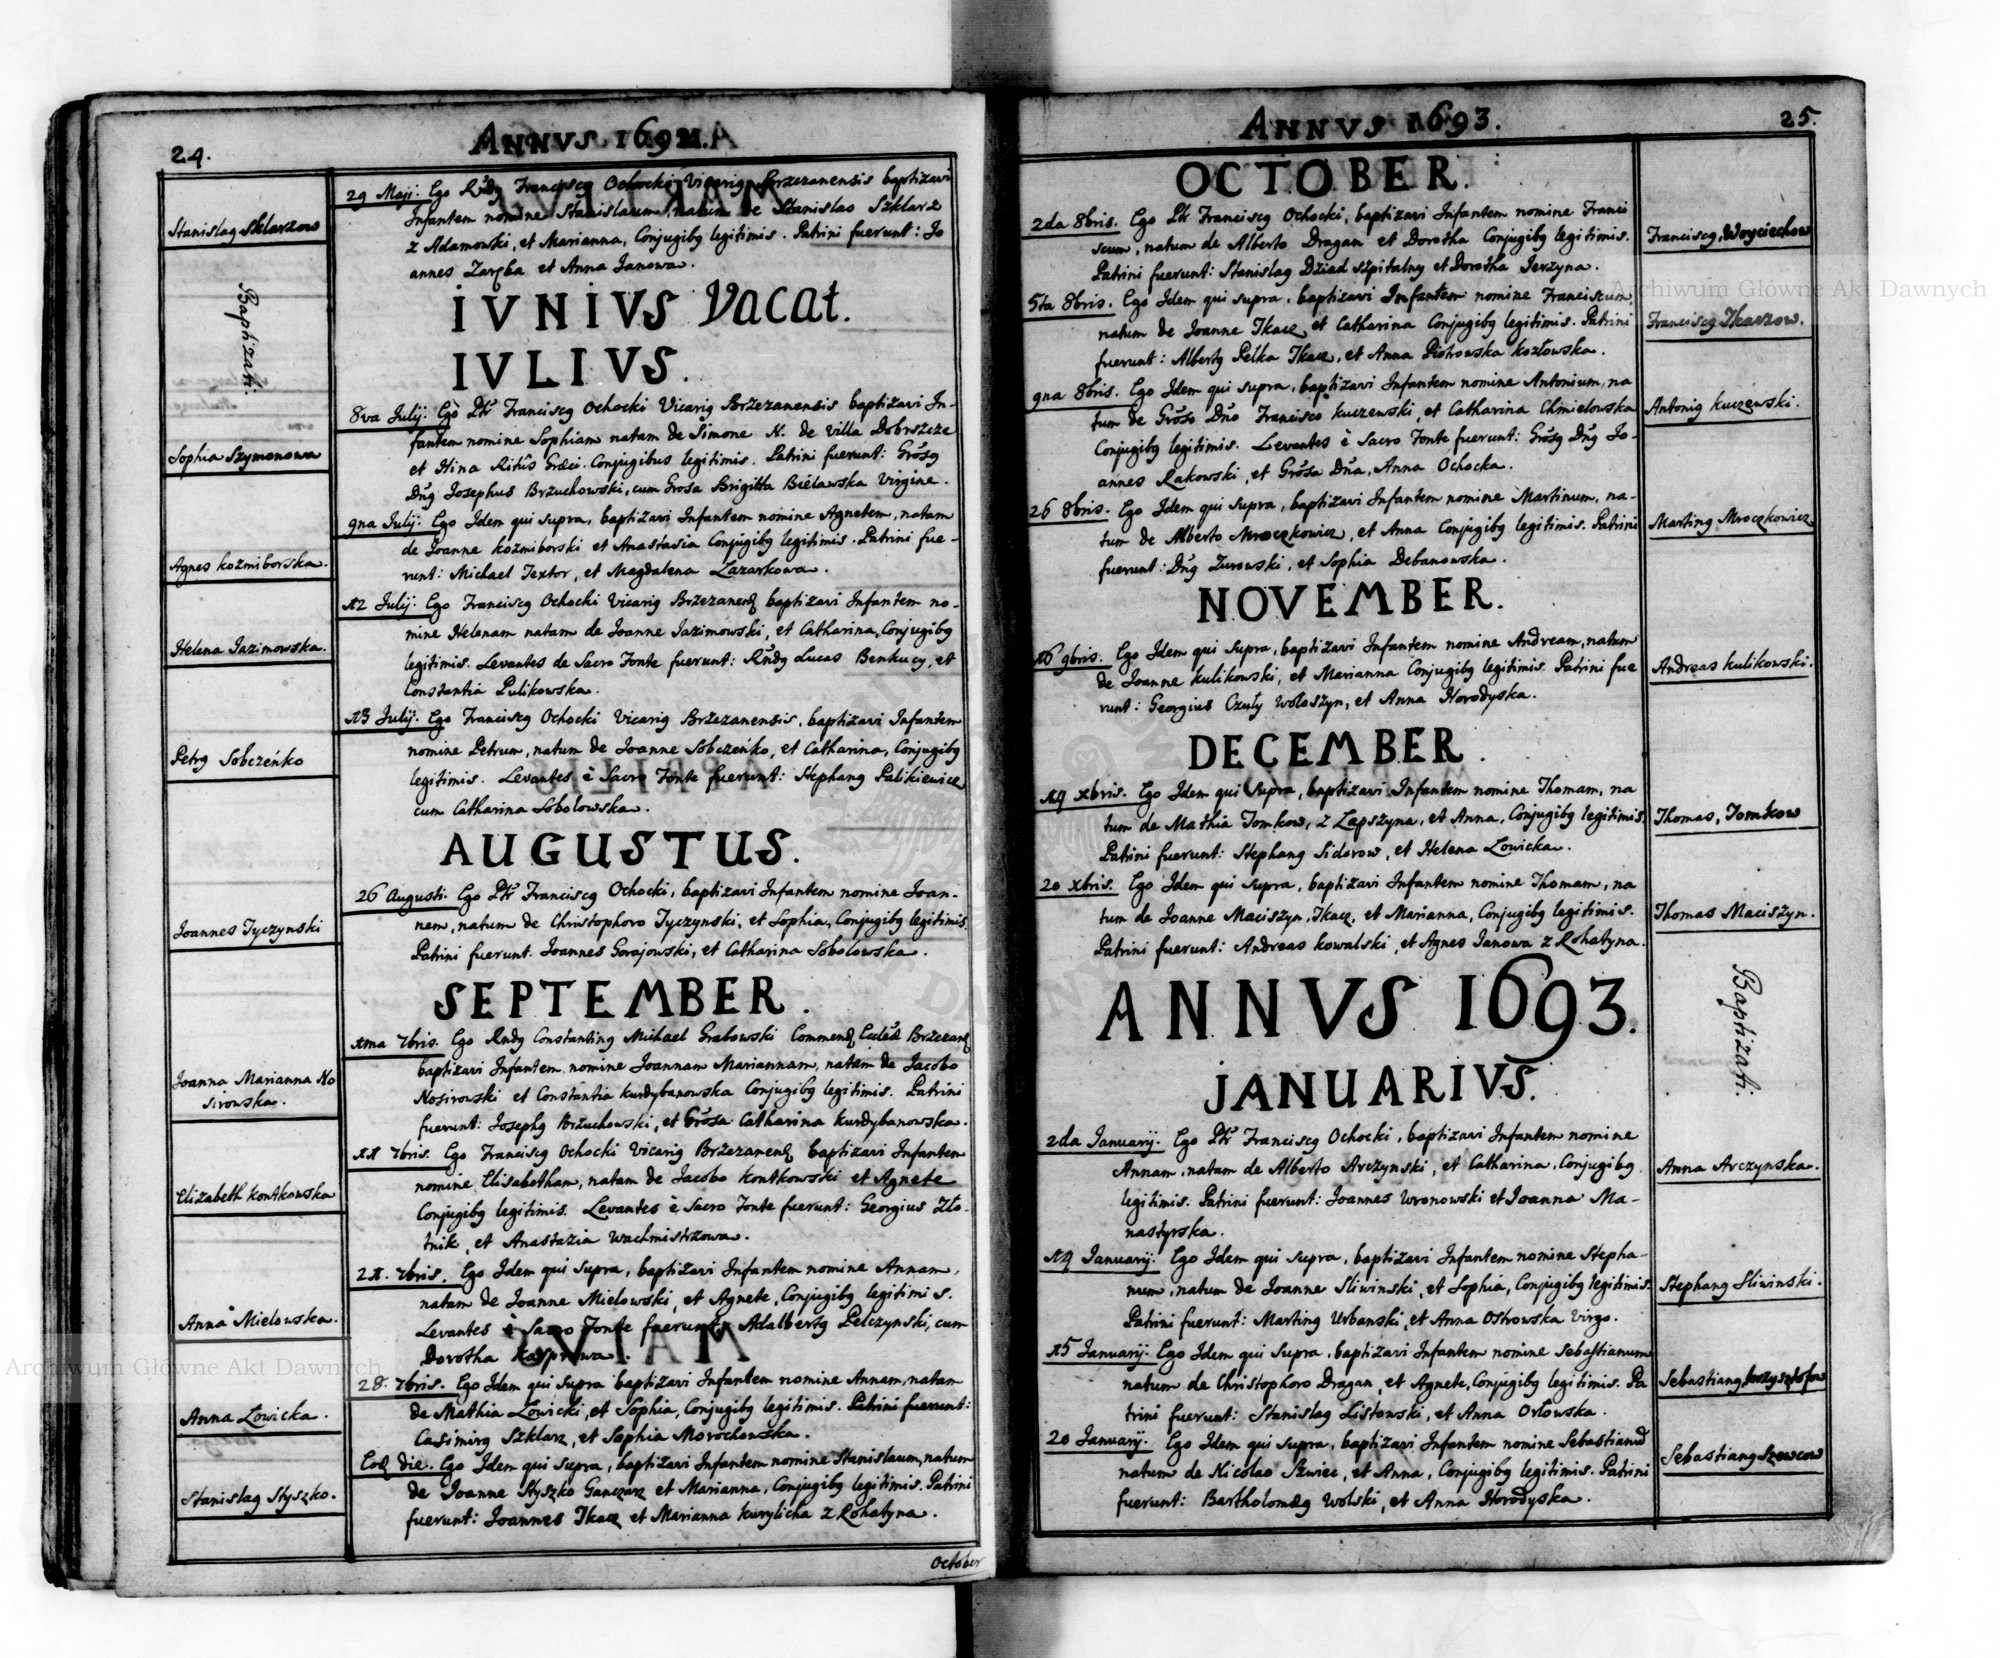 24.
ANNVS 1692.
Stanislaꝰ Sklarzow
Baptizati.
Sophia Szymonowa
Agnes Koźmiborska.
Helena Jazimowska.
Petrꝰ Sobczeńko
Joannes Tyczynski
Joanna Marianna No
sirowska.
Elizabeth Kontkowska
Anna Mielowska.
Anna Łowicka.
Stanislaꝰ Styszko.
29 Maij. Ego Rn̄dꝰ Franciscꝰ Ochocki Vicariꝰ Brzezanensis baptizavi
Infantem nomine Stanislaum, natum de Stanislao Szklarz
z Adamowski, et Marianna, Conjugibꝰ legitimis. Patrini fuerunt: Jo
annes Zaręba et Anna Janowa.
IVNIVS Vacat.
IVLIVS.
8va Julij. Ego Pr̄ Franciscꝰ Ochocki Vicariꝰ Brzezanensis baptizavi In-
fantem nomine Sophiam natam de Simone N. de villa Dobrszcze
et Hina Ritûs Græci. Conjugibus legitimis. Patrini fuerunt: Gr̄osꝰ
Dn̄ꝰ Josephus Brzuchowski, cum Grosa Brigitta Bielawska Virgine.
9na Julij. Ego Idem qui supra, baptizavi Infantem nomine Agnetem, natam
de Joanne Koźmiborski et Anastasia Conjugibꝰ legitimis. Patrini fue-
runt: Michael Textor, et Magdalena Lazarkowa.
12 Julij. Ego Franciscꝰ Ochocki Vicariꝰ Brzezanen̄ baptizavi Infantem no-
mine Helenam natam de Joanne Jazimowski, et Catharina, Conjugibꝰ
legitimis. Levantes de Sacro Fonte fuerunt: Rn̄dꝰ Lucas Benkucy, et
Constantia Pulikowska.
13 Julij. Ego Franciscꝰ Ochocki Vicariꝰ Brzezanensis, baptizavi Infantem
nomine Petrum, natum de Joanne Sobczeńko, et Catharina, Conjugibꝰ
legitimis. Levantes è Sacro Fonte fuerunt: Stephanꝰ Palikiewicz
cum Catharina Sobolowska.
AUGUSTUS.
26 Augusti. Ego Pr̄ Franciscꝰ Ochocki, baptizavi Infantem nomine Joan-
nem, natum de Christophoro Tyczynski, et Sophia, Conjugibꝰ legitimis
Patrini fuerunt. Joannes Gorajowski, et Catharina Sobolowska.
SEPTEMBER.
1ma 7bris. Ego Rndꝰ Constantinꝰ Michael Grabowski Commen̄ Eccłæ Brzezan̄
baptizavi Infantem nomine Joannam Mariannam, natam de Jacobo
Nosirowski et Constantia Kurdybanowska Conjugibꝰ legitimis. Patrini
fuerunt: Josephꝰ Brzuchowski, et Gr̄osa Catharina Kurdybanowska.
11 7bris. Ego Franciscꝰ Ochocki Vicariꝰ Brzezanen̄ baptizavi Infantem
nomine Elisabetham, natam de Jacobo Kontkowski et Agnete
Conjugibꝰ legitimis. Levantes è Sacro Fonte fuerunt: Georgius Zło-
tnik, et Anastazia Wachmistrzowa.
21. 7bris. Ego Idem qui supra, baptizavi Infantem nomine Annam,
natam de Joanne Mielowski, et Agnete, Conjugibꝰ legitimis.
Levantes è Sacro Fonte fuerunt: Adalbertꝰ Pelczynski, cum
Dorotha Kasprowa.
28. 7bris. Ego Idem qui supra baptizavi Infantem nomine Annam, natam
de Mathia Łowicki, et Sophia, Conjugibꝰ legitimis. Patrini fuerunt:
Casimirꝰ Szklarz, et Sophia Morochowska.
Eod̄ die. Ego Idem qui supra, baptizavi Infantem nomine Stanislaum, natum
de Joanne Styszko Ganczarz et Marianna, Conjugibꝰ legitimis. Patrini
fuerunt: Joannes Tkacz et Marianna Kurylicha z Rohatyna.
October
ANNVS 1693.
25.
OCTOBER.
2da 8bris. Ego Pr̄ Franciscꝰ Ochocki, baptizavi Infantem nomine Franci
scum, natum de Alberto Dragan et Dorotha Conjugibꝰ legitimis.
Patrini fuerunt: Stanislaꝰ Dziad szpitalny et Dorotha Jerzyna.
5ta 8bris. Ego Idem qui supra, baptizavi Infantem nomine Franciscum,
natum de Joanne Tkacz et Catharina Conjugibꝰ legitimis. Patrini
fuerunt: Albertꝰ Pełka Tkacz, et Anna Piotrowska Kozłowska.
9na 8bris. Ego Idem qui supra, baptizavi Infantem nomine Antonium, na
tum de Gr̄oso Dn̄o Francisco Kuczewski, et Catharina Chmielowska
Conjugibꝰ legitimis. Levantes è Sacro Fonte fuerunt: Gr̄osꝰ Dn̄ꝰ Jo-
annes Rakowski, et Gr̄osa Dn̄a, Anna Ochocka.
26 8bris. Ego Idem qui supra, baptizavi Infantem nomine Martinum, na-
tum de Alberto Mroczkowicz, et Anna Conjugibꝰ legitimis. Patrini
fuerunt: Dn̄ꝰ Zurowski, et Sophia Debanowska.
NOVEMBER.
16 9bris. Ego Idem qui supra, baptizavi Infantem nomine Andream, natum
de Joanne Kulikowski, et Marianna Conjugibꝰ legitimis. Patrini fue
runt: Georgius Czuły Wołoszyn, et Anna Horodyska.
DECEMBER.
14 xbris. Ego Idem qui supra, baptizavi Infantem nomine Thomam, na
tum de Mathia Tomkow, z Łapszyna, et Anna, Conjugibꝰ legitimis.
Patrini fuerunt: Stephanꝰ Sidorow, et Helena Łowicka.
20 xbris. Ego Idem qui supra, baptizavi Infantem nomine Thomam, na
tum de Joanne Maciszyn, Tkacz, et Marianna, Conjugibꝰ legitimis.
Patrini fuerunt: Andreas Kowalski, et Agnes Janowa z Rohatyna.
ANNVS 1693.
JANUARIVS.
2da Januarij. Ego Pr̄ Franciscꝰ Ochocki, baptizavi Infantem nomine
Annam, natam de Alberto Arczynski, et Catharina, Conjugibꝰ
legitimis. Patrini fuerunt: Joannes Wronowski et Joanna Ma-
nastyrska.
14 Januarij. Ego Idem qui supra, baptizavi Infantem nomine Stepha-
num, natum de Joanne Sliwinski, et Sophia, Conjugibꝰ legitimis.
Patrini fuerunt: Martinꝰ Urbanski, et Anna Ostrowska Virgo.
15 Januarij. Ego Idem qui supra, baptizavi Infantem nomine Sebastianum
natum de Christophoro Dragan, et Agnete, Conjugibꝰ legitimis. Pa
trini fuerunt: Stanislaꝰ Listowski, et Anna Orłowska.
20 Januarij. Ego Idem qui supra, baptizavi Infantem nomine Sebastianū
natum de Nicolao Szwiec, et Anna, Conjugibꝰ legitimis. Patrini
fuerunt: Bartholomæꝰ Wolski, et Anna Horodyska.
Franciscꝰ, Woyciechow
Franciscꝰ Tkaczow.
Antoniꝰ Kuczewski.
Martinꝰ Mroczkowicz
Andreas Kulikowski.
Thomas, Tomkow
Thomas Maciszyn.
Baptizati.
Anna Arczynska.
Stephanꝰ Sliwinski.
Sebastianꝰ Krzysztofow
Sebastianꝰ Szewcow
Archiwum Główne Akt Dawnych
Archiwum Główne Akt Dawnych